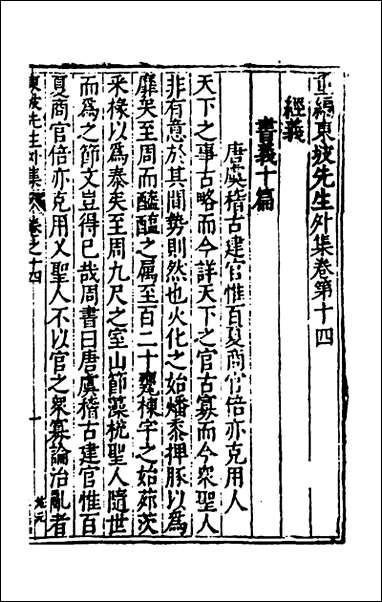 重編東坡先生外集卷第十四
經義
書義十篇
唐虞稽古建官惟百夏商官倍亦克用人
天下之事古略而今詳天下之官古寡而今衆聖人
非有意於其間勢則然也火化之始燔黍捭豚以為
靡矣至周而醯醢之属至百二十甕棟宇之始茆茨
采椽以為泰矣至周九尺之室山節藻梲聖人隨世
而為之節文豈得已哉周書曰唐虞稽古建官惟百
夏商官倍亦克用乂聖人不以官之衆寡論治亂者
東坡先生外集 卷之十四 一